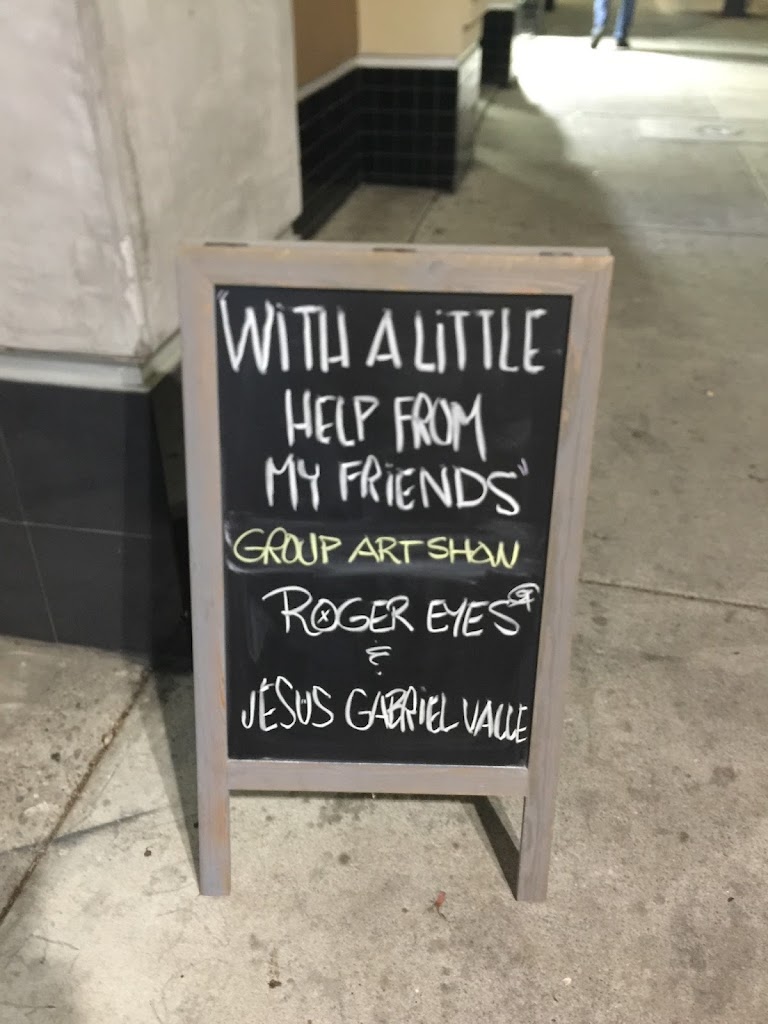 "WITH A LITTLE
HELP FROM
MY FRIENDS"
GROUP ART SHOW
ROGER EYES
&
JESUS GABRIEL VALLE